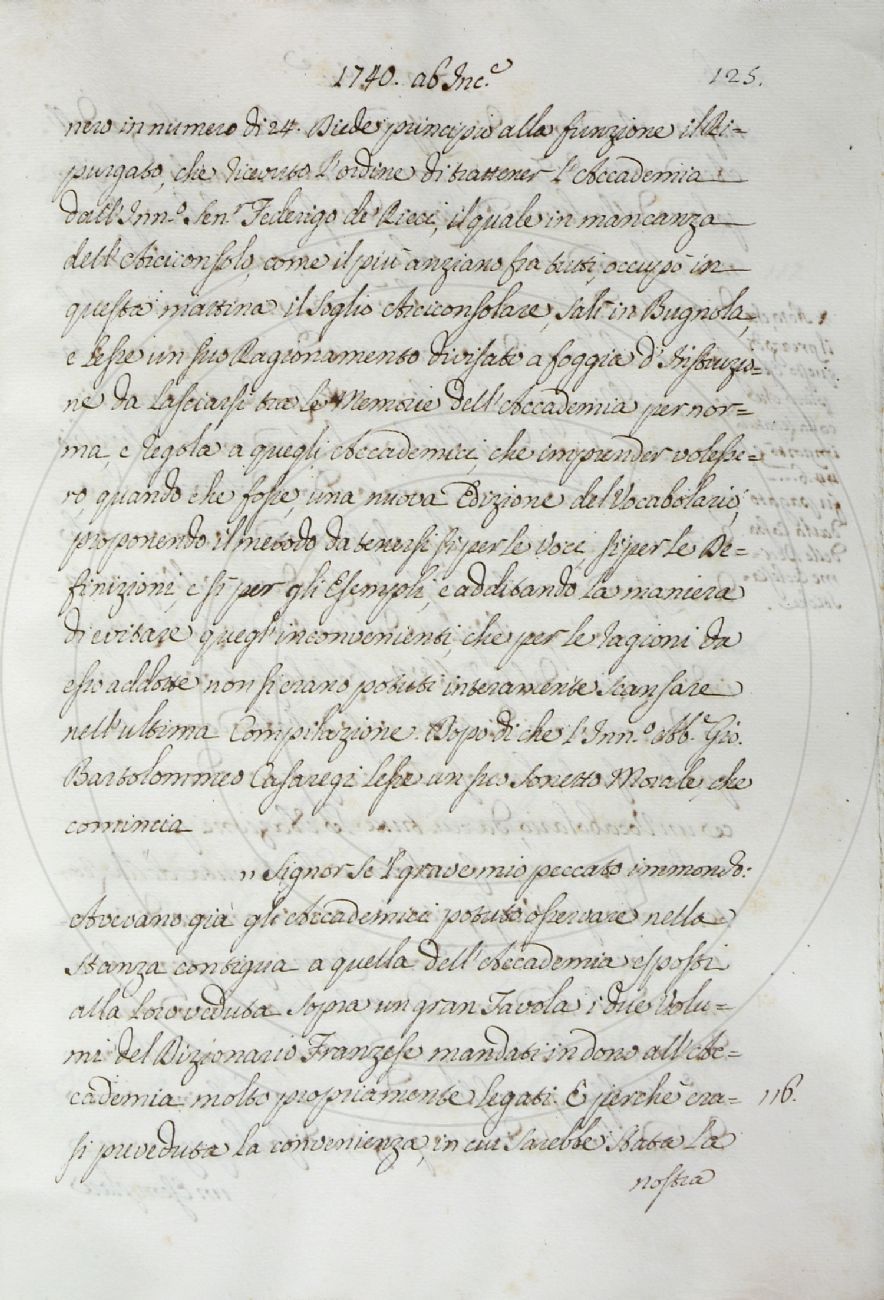 1740. ab Inc.e 125.
nero in numero di 24. Diede principio alla funzione il Ri=
purgato, che ricevuto l'ordine di trattener l'Accademia
dall'Inn.o Sen.r Federigo de Ricci, il quale in mancanza
dell'Arciconsolo, come il più anziano fra tutti, occupò in
questa mattina il soglio Arciconsolare, salì in Bugnola,
e lesse un suo Ragionamento divisato a foggia d'Istruzio=
ne da lasciarsi tra le Memorie dell'Accademia per nor=
ma, e regola a quegli Accademici, che imprender volesse=
ro quando che fosse, una nuova Edizione del Vocabolario,
proponendo il metodo da tenersi sì per le Voci, sì per le De=
finizioni, e sì per gli Esempli, e additando la maniera
di evitare quegl'inconvenienti, che per le ragioni da
esso addotte non si erano potuti interamente scansare
nell'ultima Compilazione. Dopo di che l'Inn.o Abb.e Gio.
Bartolommeo Casaregi lesse un suo Sonetto Morale, che
comincia
,, Signor se 'l grave mio peccato immondo:
Avevano già gli Accademici potuto osservare nella
stanza contigua a quella dell'Accademia esposti
alla loro veduta sopra un gran Tavola i due Volu=
mi del Dizionario Franzese mandati in dono all'Ac=
cademia molto propriamente legati. E perchè era= 116.
si preveduta la convenienza, in cui sarebbe stata la
nostra